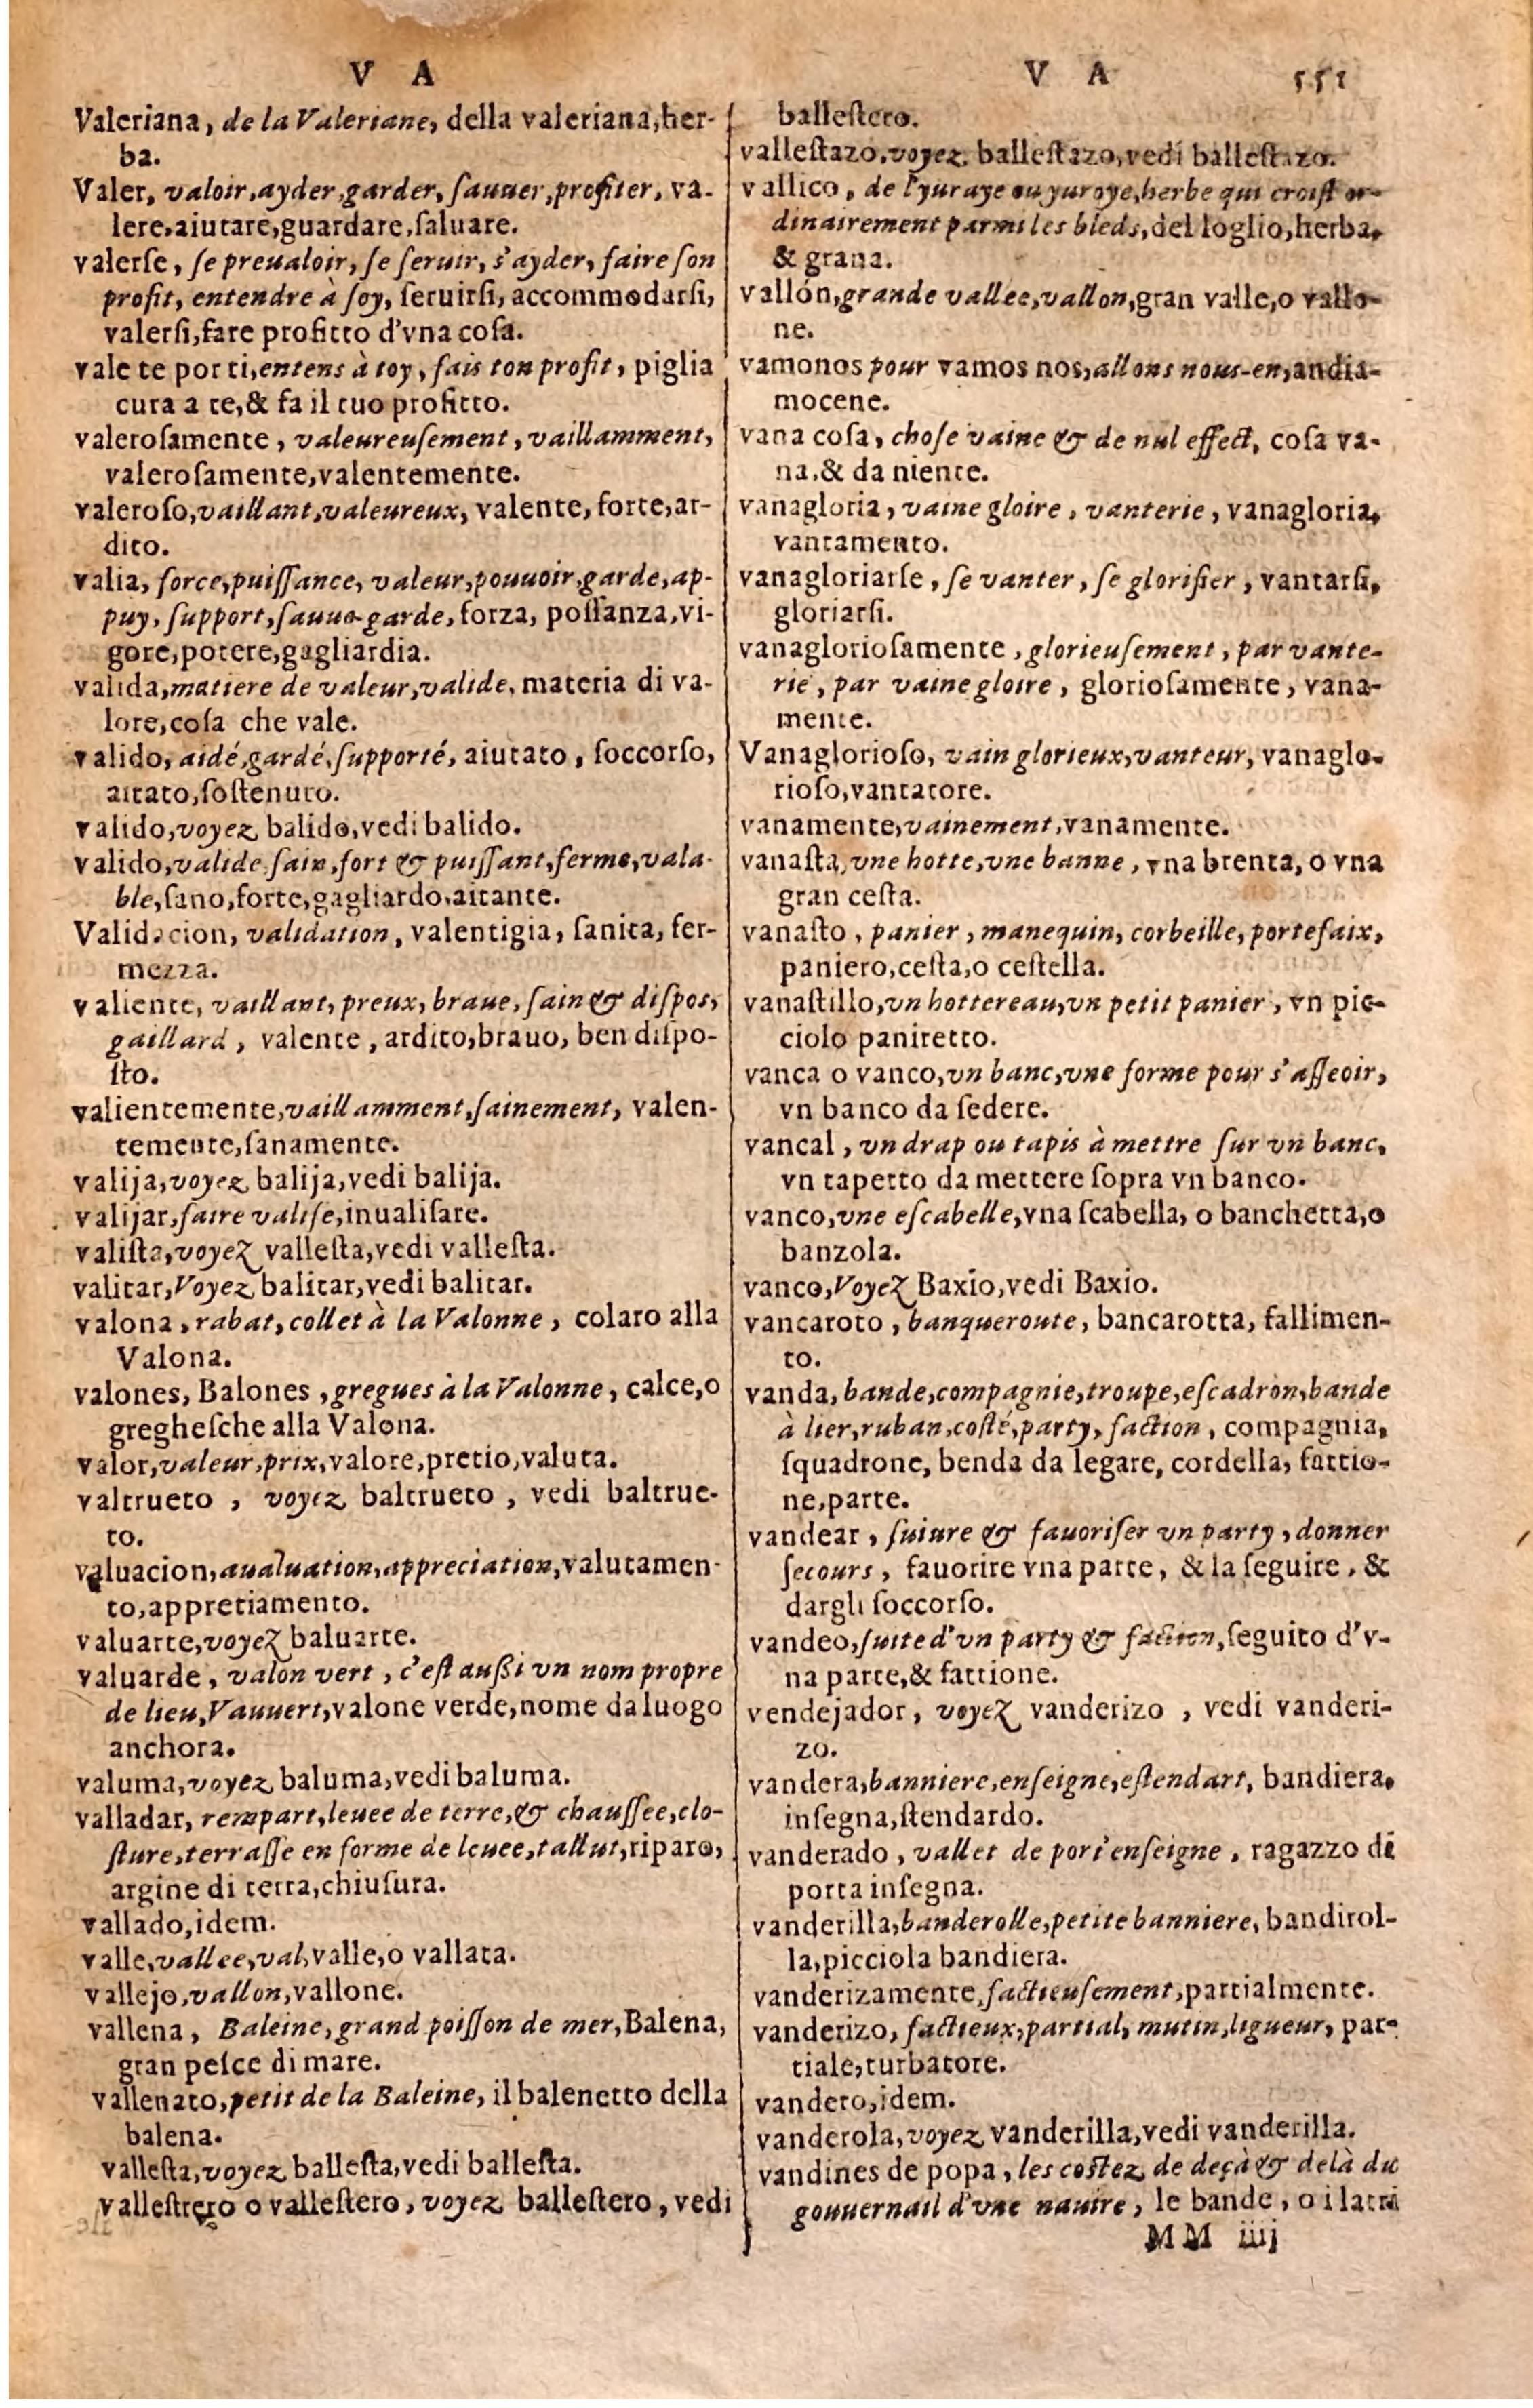 V A
Valeriana, de la Valeriane, della valeriana, her-
ba.
Valer, valoir, ayder, garder, ſauuer, profiter, va-
lere, aiutare, guardare, ſaluare.
valerſe, ſe preualoir, ſe ſeruir, s'ayder, faire ſon
profit, entendre à ſoy, ſeruirſi, accommodarſi,
valerſi, fare profitto d'vna coſa.
vale te por ti, entens à toy, fais ton profit, piglia
cura a te, & fa il tuo profitto.
valeroſamente, valeureuſement, vaillamment,
valeroſamente, valentemente.
valeroſo, vaillant, valeureux, valente, forte, ar-
dito.
valia, force, puiſſance, valeur, pouuoir, garde, ap-
puy, ſupport, ſauue-garde, forza, poſſanza, vi-
gore, potere, gagliardia.
valida, matiere de valeur, valide, materia di va-
lore, coſa che vale.
valido, aidé, gardé, ſupporté, aiutato, ſoccorſo,
aitato, ſoſtenuto.
valido, voyez balido, vedi balido.
valido, valide ſain, fort & puiſſant, ferme, vala-
ble, ſano, forte, gagliardo, aitante.
Validacion, validation, valentigia, ſanita, fer-
mezza.
valiente, vaillant, preux, braue, ſain & diſpos,
gaillard, valente, ardito, brauo, ben diſpo-
ſto.
valientemente, vaillamment, ſainement, valen-
temente, ſanamente.
valija, voyez balija, vedi balija.
valijar, faire valiſe, inualiſare.
valiſta, voyez valleſta, vedi valleſta.
valitar, Voyez balitar, vedi balitar.
valona, rabat, collet à la Valonne, colaro alla
Valona.
valones, Balones, gregues à la Valonne, calce, o
gregheſche alla Valona.
valor, valeur, prix, valore, pretio, valuta.
valtrueto, voyez baltrueto, vedi baltrue-
to.
valuacion, aualuation, appreciation, valutamen-
to, appretiamento.
valuarte, voyez baluarte.
valuarde, valon vert, c'eſt auſsi vn nom propre
de lieu, Vauuert, valone verde, nome da luogo
anchora.
valuma, voyez baluma, vedi baluma.
valladar, rempart, leuee de terre, & chauſſee, clo-
ſture, terraſſe en forme de leuee, tallut, riparo,
argine di terra, chiuſura.
vallado, idem.
valle, vallee, val, valle, o vallata.
vallejo, vallon, vallone.
vallena, Baleine, grand poiſſon de mer, Balena,
gran peſce di mare.
vallenato, petit de la Baleine, il balenetto della
balena.
valleſta, voyez balleſta, vedi balleſta.
valleſtrero o valleſtero, voyez balleſtero, vedi
V A 551
balleſtero.
valleſtazo, voyez balleſtazo, vedi balleſtazo.
vallico, de l'yuraye ou yuroye, herbe qui croiſt or-
dinairement parmi les bleds, del loglio, herba,
& grana.
vallón, grande vallee, vallon, gran valle, o vallo-
ne.
vamonos pour vamos nos, allons nous-en, andia-
mocene.
vana coſa, choſe vaine & de nul effect, coſa va-
na, & da niente.
vanagloria, vaine gloire, vanterie, vanagloria,
vantamento.
vanagloriarſe, ſe vanter, ſe glorifier, vantarſi,
gloriarſi.
vanaglorioſamente, glorieuſement, par vante-
rie, par vaine gloire, glorioſamente, vana-
mente.
Vanaglorioſo, vain glorieux, vanteur, vanaglo-
rioſo, vantatore.
vanamente, vainement, vanamente.
vanaſta, vne hotte, vne banne, vna brenta, o vna
gran ceſta.
vanaſto, panier, manequin, corbeille, portefaix,
paniero, ceſta, o ceſtella.
vanaſtillo, vn hottereau, vn petit panier, vn pic-
ciolo paniretto.
vanca o vanco, vn banc, vne forme pour s'aſſeoir,
vn banco da ſedere.
vancal, vn drap ou tapis à mettre ſur vn banc,
vn tapetto da mettere ſopra vn banco.
vanco, vne eſcabelle, vna ſcabella, o banchetta, o
banzola.
vanco, Voyez Baxio, vedi Baxio.
vancaroto, banqueroute, bancarotta, fallimen-
to.
vanda, bande, compagnie, troupe, eſcadron, bande
à lier, ruban, coſté, party, faction, compagnia,
ſquadrone, benda da legare, cordella, fattio-
ne, parte.
vandear, ſuiure & fauoriſer vn party, donner
ſecours, fauorire vna parte, & la ſeguire, &
dargli ſoccorſo.
vandeo, ſuite d'vn party & faction, ſeguito d'v-
na parte, & fattione.
vendejador, voyez vanderizo, vedi vanderi-
zo.
vandera, banniere, enſeigne, eſtendart, bandiera,
inſegna, ſtendardo.
vanderado, vallet de port'enſeigne, ragazzo di
porta inſegna.
vanderilla, banderolle, petite banniere, bandirol-
la, picciola bandiera.
vanderizamente, factieuſement, partialmente.
vanderizo, factieux, partial, mutin, ligueur, par-
tiale, turbatore.
vandero, idem.
vanderola, voyez vanderilla, vedi vanderilla.
vandines de popa, les coſtez de deçà & delà du
gouuernail d'vne nauire, le bande, o i latti
MM iiij